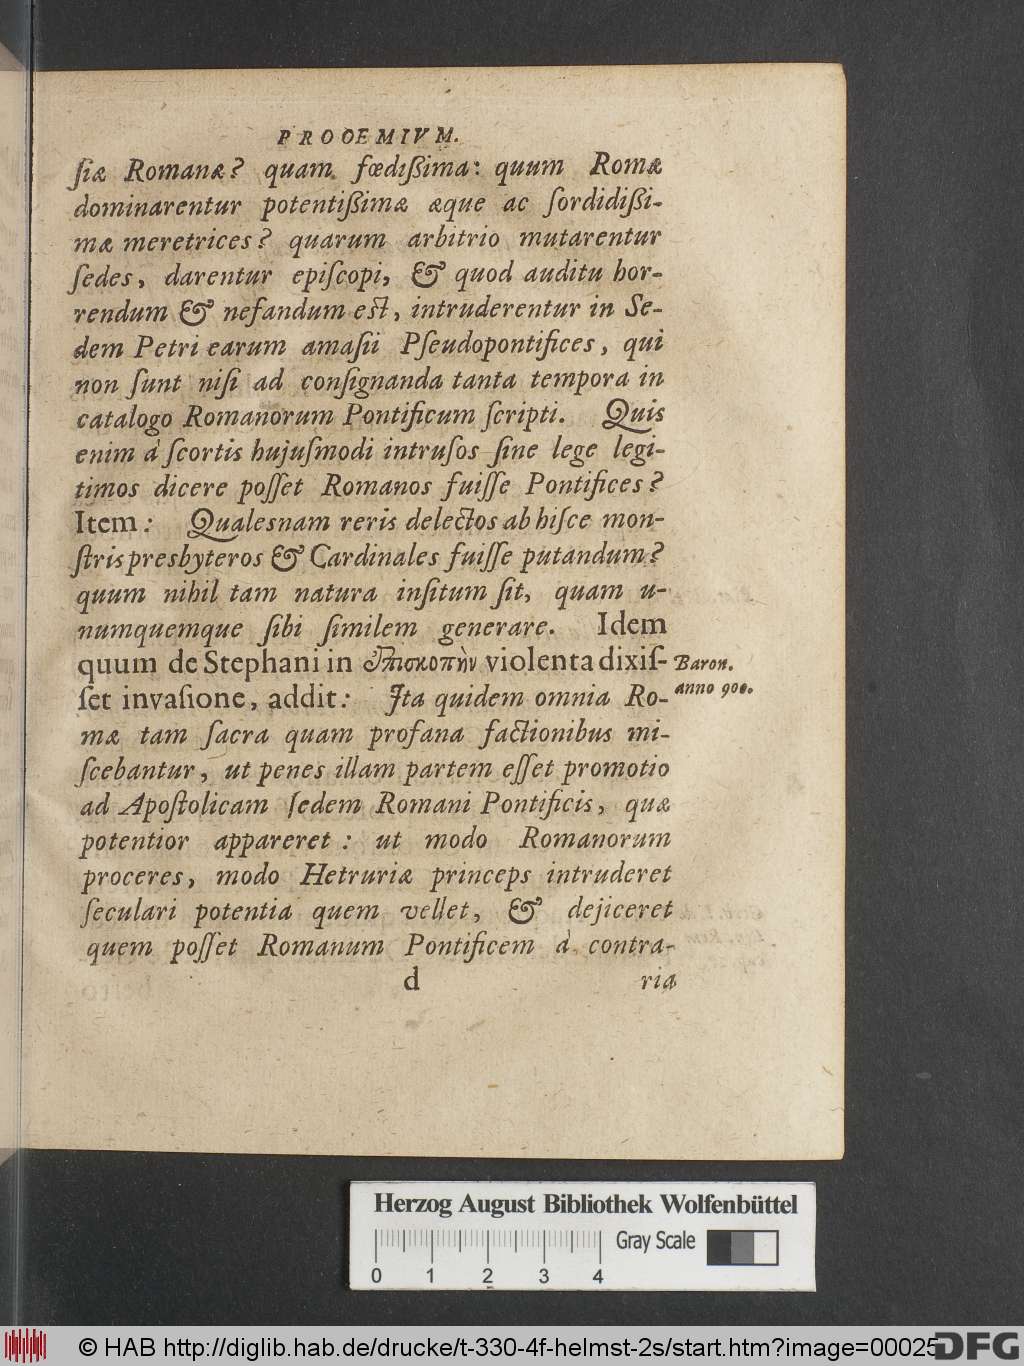 PROOEMIVM.
ſiæ Romanæ? quam fœdißima: quum Romæ
dominarentur potentißimæ æque ac ſordidißi-
mæ meretrices? quarum arbitrio mutarentur
ſedes, darentur epiſcopi, & quod auditu hor-
rendum & nefandum eſt, intruderentur in Se-
dem Petri earum amaſii Pſeudopontifices, qui
non ſunt niſi ad conſignanda tanta tempora in
catalogo Romanorum Pontificum ſcripti. Quis
enim à ſcortis hujuſmodi intruſos ſine lege legi-
timos dicere poſſet Romanos fuiſſe Pontifices?
Item: Qualesnam reris delectos ab hiſce mon-
ſtris presbyteros & Cardinales fuiſſe putandum?
quum nihil tam natura inſitum ſit, quam u-
numquemque ſibi ſimilem generare. Idem
quum de Stephani in ἐπισκοπὴν violenta dixiſ-
ſet invaſione, addit: Ita quidem omnia Ro-
Baron.
anno 900.
mæ tam ſacra quam profana factionibus mi-
ſcebantur, ut penes illam partem eſſet promotio
ad Apoſtolicam ſedem Romani Pontificis, quæ
potentior appareret: ut modo Romanorum
proceres, modo Hetruriæ princeps intruderet
ſeculari potentia quem vellet, & dejiceret
quem poſſet Romanum Pontificem à contra-
d
ria
Herzog August Bibliothek Wolfenbüttel
Gray Scale
0 1 2 3 4
© HAB http://diglib.hab.de/drucke/t-330-4f-helmst-2s/start.htm?image=00025
DFG